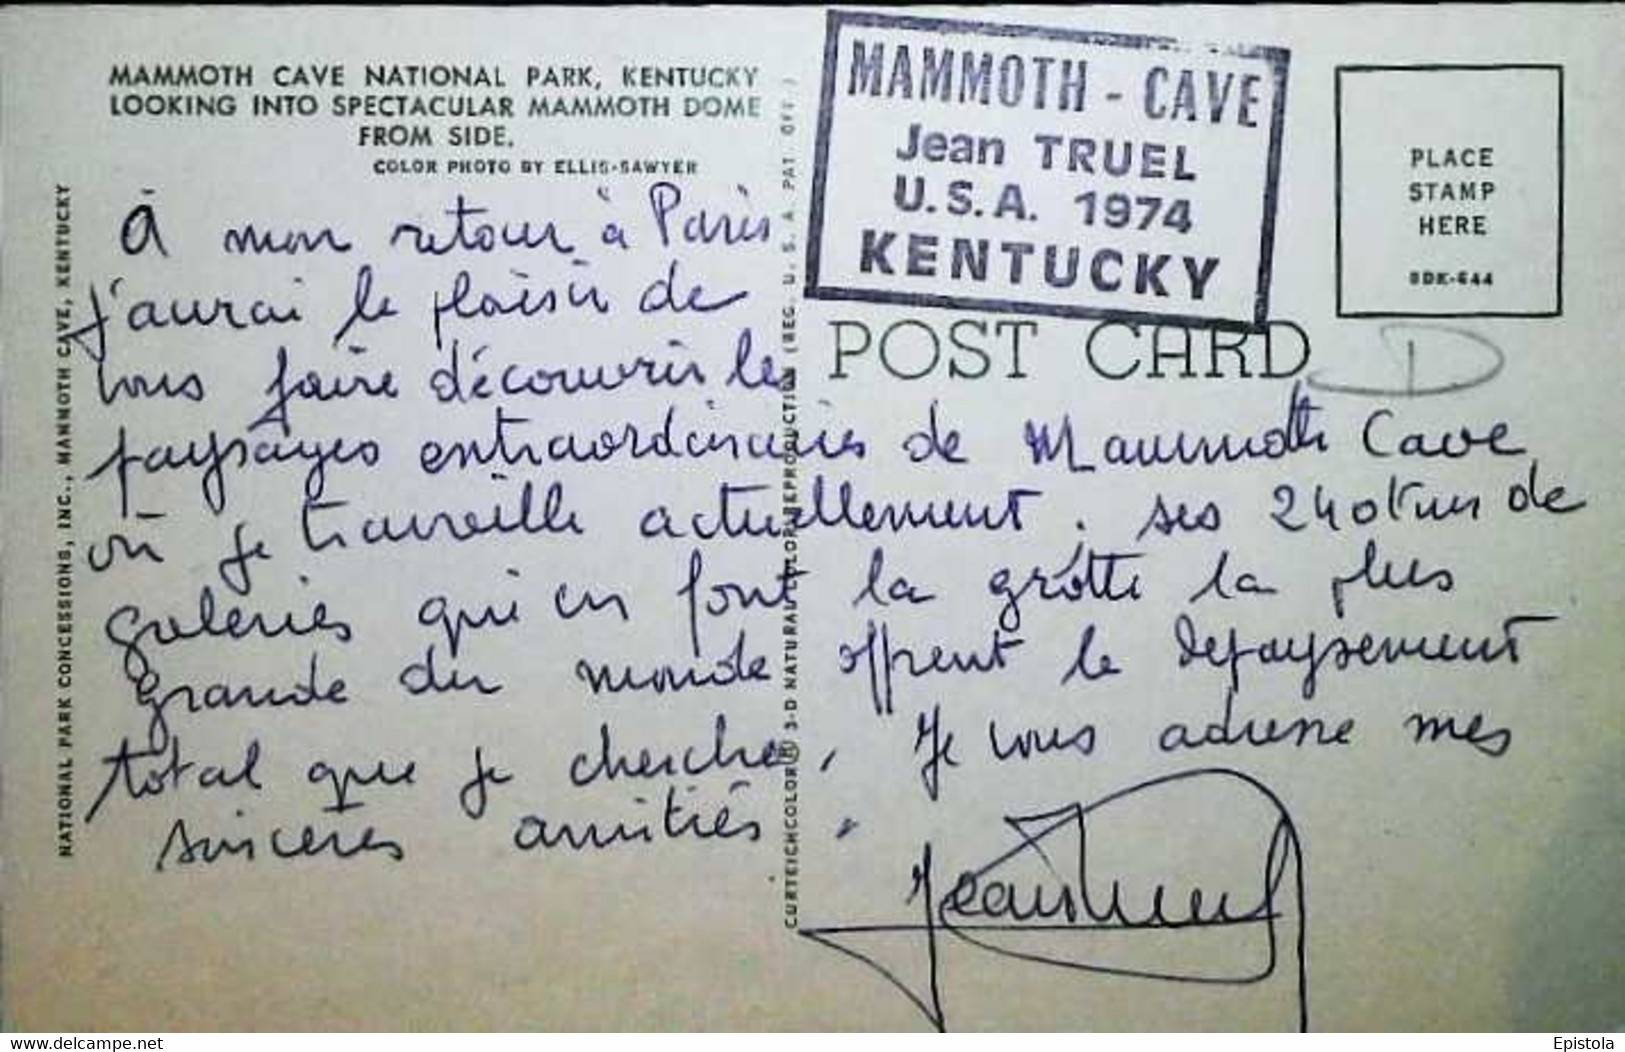 MAMMOTH CAVE NATIONAL PARK, KENTUCKY
LOOKING INTO SPECTACULAR MAMMOTH DOME
FROM SIDE.
COLOR PHOTO BY ELLIS-SAWYER
MAMMOTH - CAVE
Jean TRUEL
U.S.A. 1974
KENTUCKY
PLACE
STAMP
HERE
8DK-644
POST CARD
D
À mon retour à Paris
j'aurai le plaisir de
vous faire découvrir les
paysages extraordinaires de Mammoth Cave
où je travaille actuellement. Ses 240 km de
galeries qui en font la grotte la plus
grande du monde offrent le depaysement
total que je cherche. Je vous adresse mes
sincères amitiés.
Jean Truel
NATIONAL PARK CONCESSIONS, INC., MAMMOTH CAVE, KENTUCKY
CURTEICHCOLOR ® 3-D NATURAL COLOR REPRODUCTION (REG. U. S. A. PAT. OFF.)
delcampe.net
Epistola